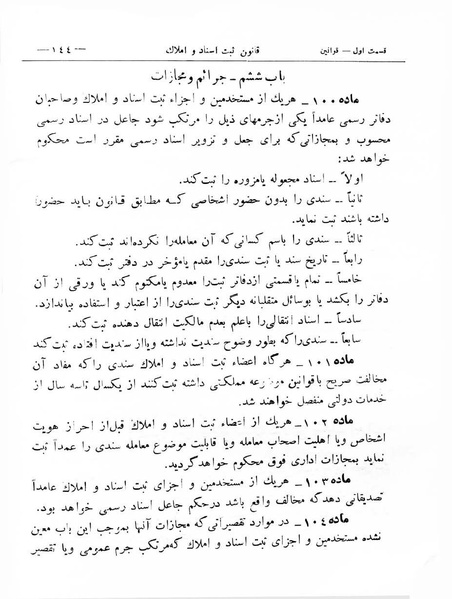 قسمت اول — قوانین قانون ثبت اسناد و املاك —١٤٤—
باب ششم - جرائم ومجازات
ماده ١٠٠- هریك از مستخدمین و اجزاء ثبت اسناد و املاك وصاحبان
دفاتر رسمی عامداً یکی ازجرمهای ذیل را مرتکب شود جاعل در اسناد رسمی
محسوب و بمجازاتی‌که برای جعل و تزویر اسناد رسمی مقرر است محکوم
خواهد شد:
اولاً ـــ اسناد مجعوله یامزوره را ثبت‌کند.
ثانیاً ـــ سندی را بدون حضور اشخاصی کـه مطابق قـانون بـاید حضور
داشته باشند ثبت نماید.
ثالثاً ـــ سندی را باسم کسانی‌که آن معامله‌را نکرده‌اند ثبت‌کند.
رابعاً ـــ تاریخ سند یا ثبت سندی‌را مقدم یامؤخر در دفتر ثبت‌کند.
خامساً ـــ تمام یاقسمتی ازدفاتر ثبت‌را معدوم یامکتوم کند یا ورقی از آن
دفاتر را بکشد یا بوسائل متقلبانه دیگر ثبت سندی‌را از اعتبار و استفاده بیاندازد.
سادساً ـ اسناد انتقالی‌را باعلم بعدم مالکیت انتقال دهنده ثبت‌کند
سابعاً ـ سندی‌راکه بطور وضوح سندیت نداشته ویااز سندیت افتاده ثبت‌کند
ماده ١٠١- هرگاه اعضاء ثبت اسناد و املاك سندی راکه مفاد آن
مخالفت صریح باقوانین موضوعه مملکتی داشته ثبت‌کنند از یکسال تاسه سال از
خدمات دولتی منفصل خواهند شد.
ماده ١٠٢- هریك از اعضاء ثبت اسناد و املاك قبل‌از احراز هویت
اشخاص ویا اهلیت اصحاب معامله ویا قابلیت موضوع معامله سندی را عمداً ثبت
نماید بمجازات اداری فوق محکوم خواهدگردید.
ماده ١٠٣- هریك از مستخدمین و اجزای ثبت اسناد و املاك عامداً
تصدیقاتی دهدکه مخالف واقع باشد درحکم جاعل اسناد رسمی خواهد بود.
ماده ١٠٤- در موارد تقصیراتی‌که مجازات آنها بموجب این باب معین
نشده مستخدمین و اجزای ثبت اسناد و املاك که‌مرتکب جرم عمومی ویا تقصیر